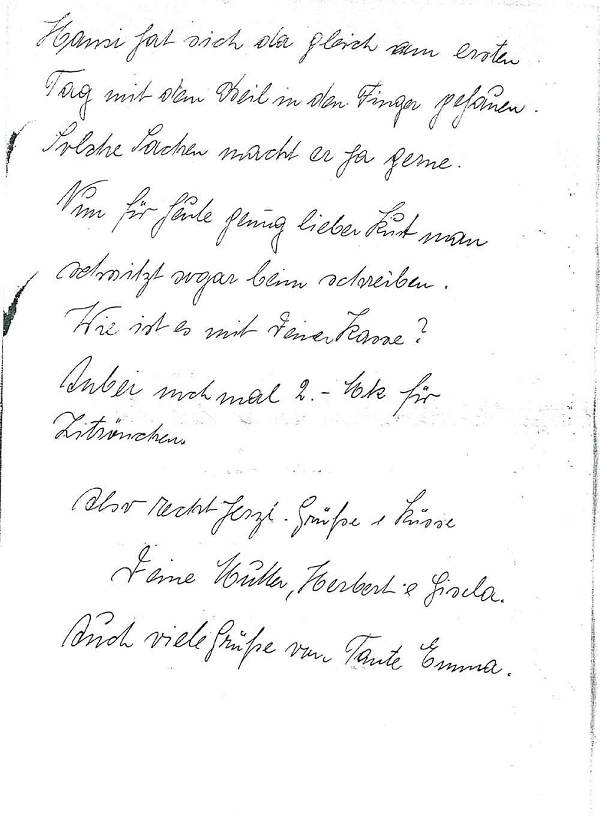 Hansi hat sich da gleich am ersten
Tag mit dem Beil in den Finger gehauen.
Solche Sachen macht er ja gerne.
Nun für heute genug lieber Kurt man
schwitzt sogar beim schreiben.
Wie ist es mit Deiner Kasse?
Anbei noch mal 2.- Mk für
Zitrönchen.
Also recht herzl. Grüße u Küsse
Deine Mutter, Herbert u Gisela.
Auch viele Grüße von Tante Emma.